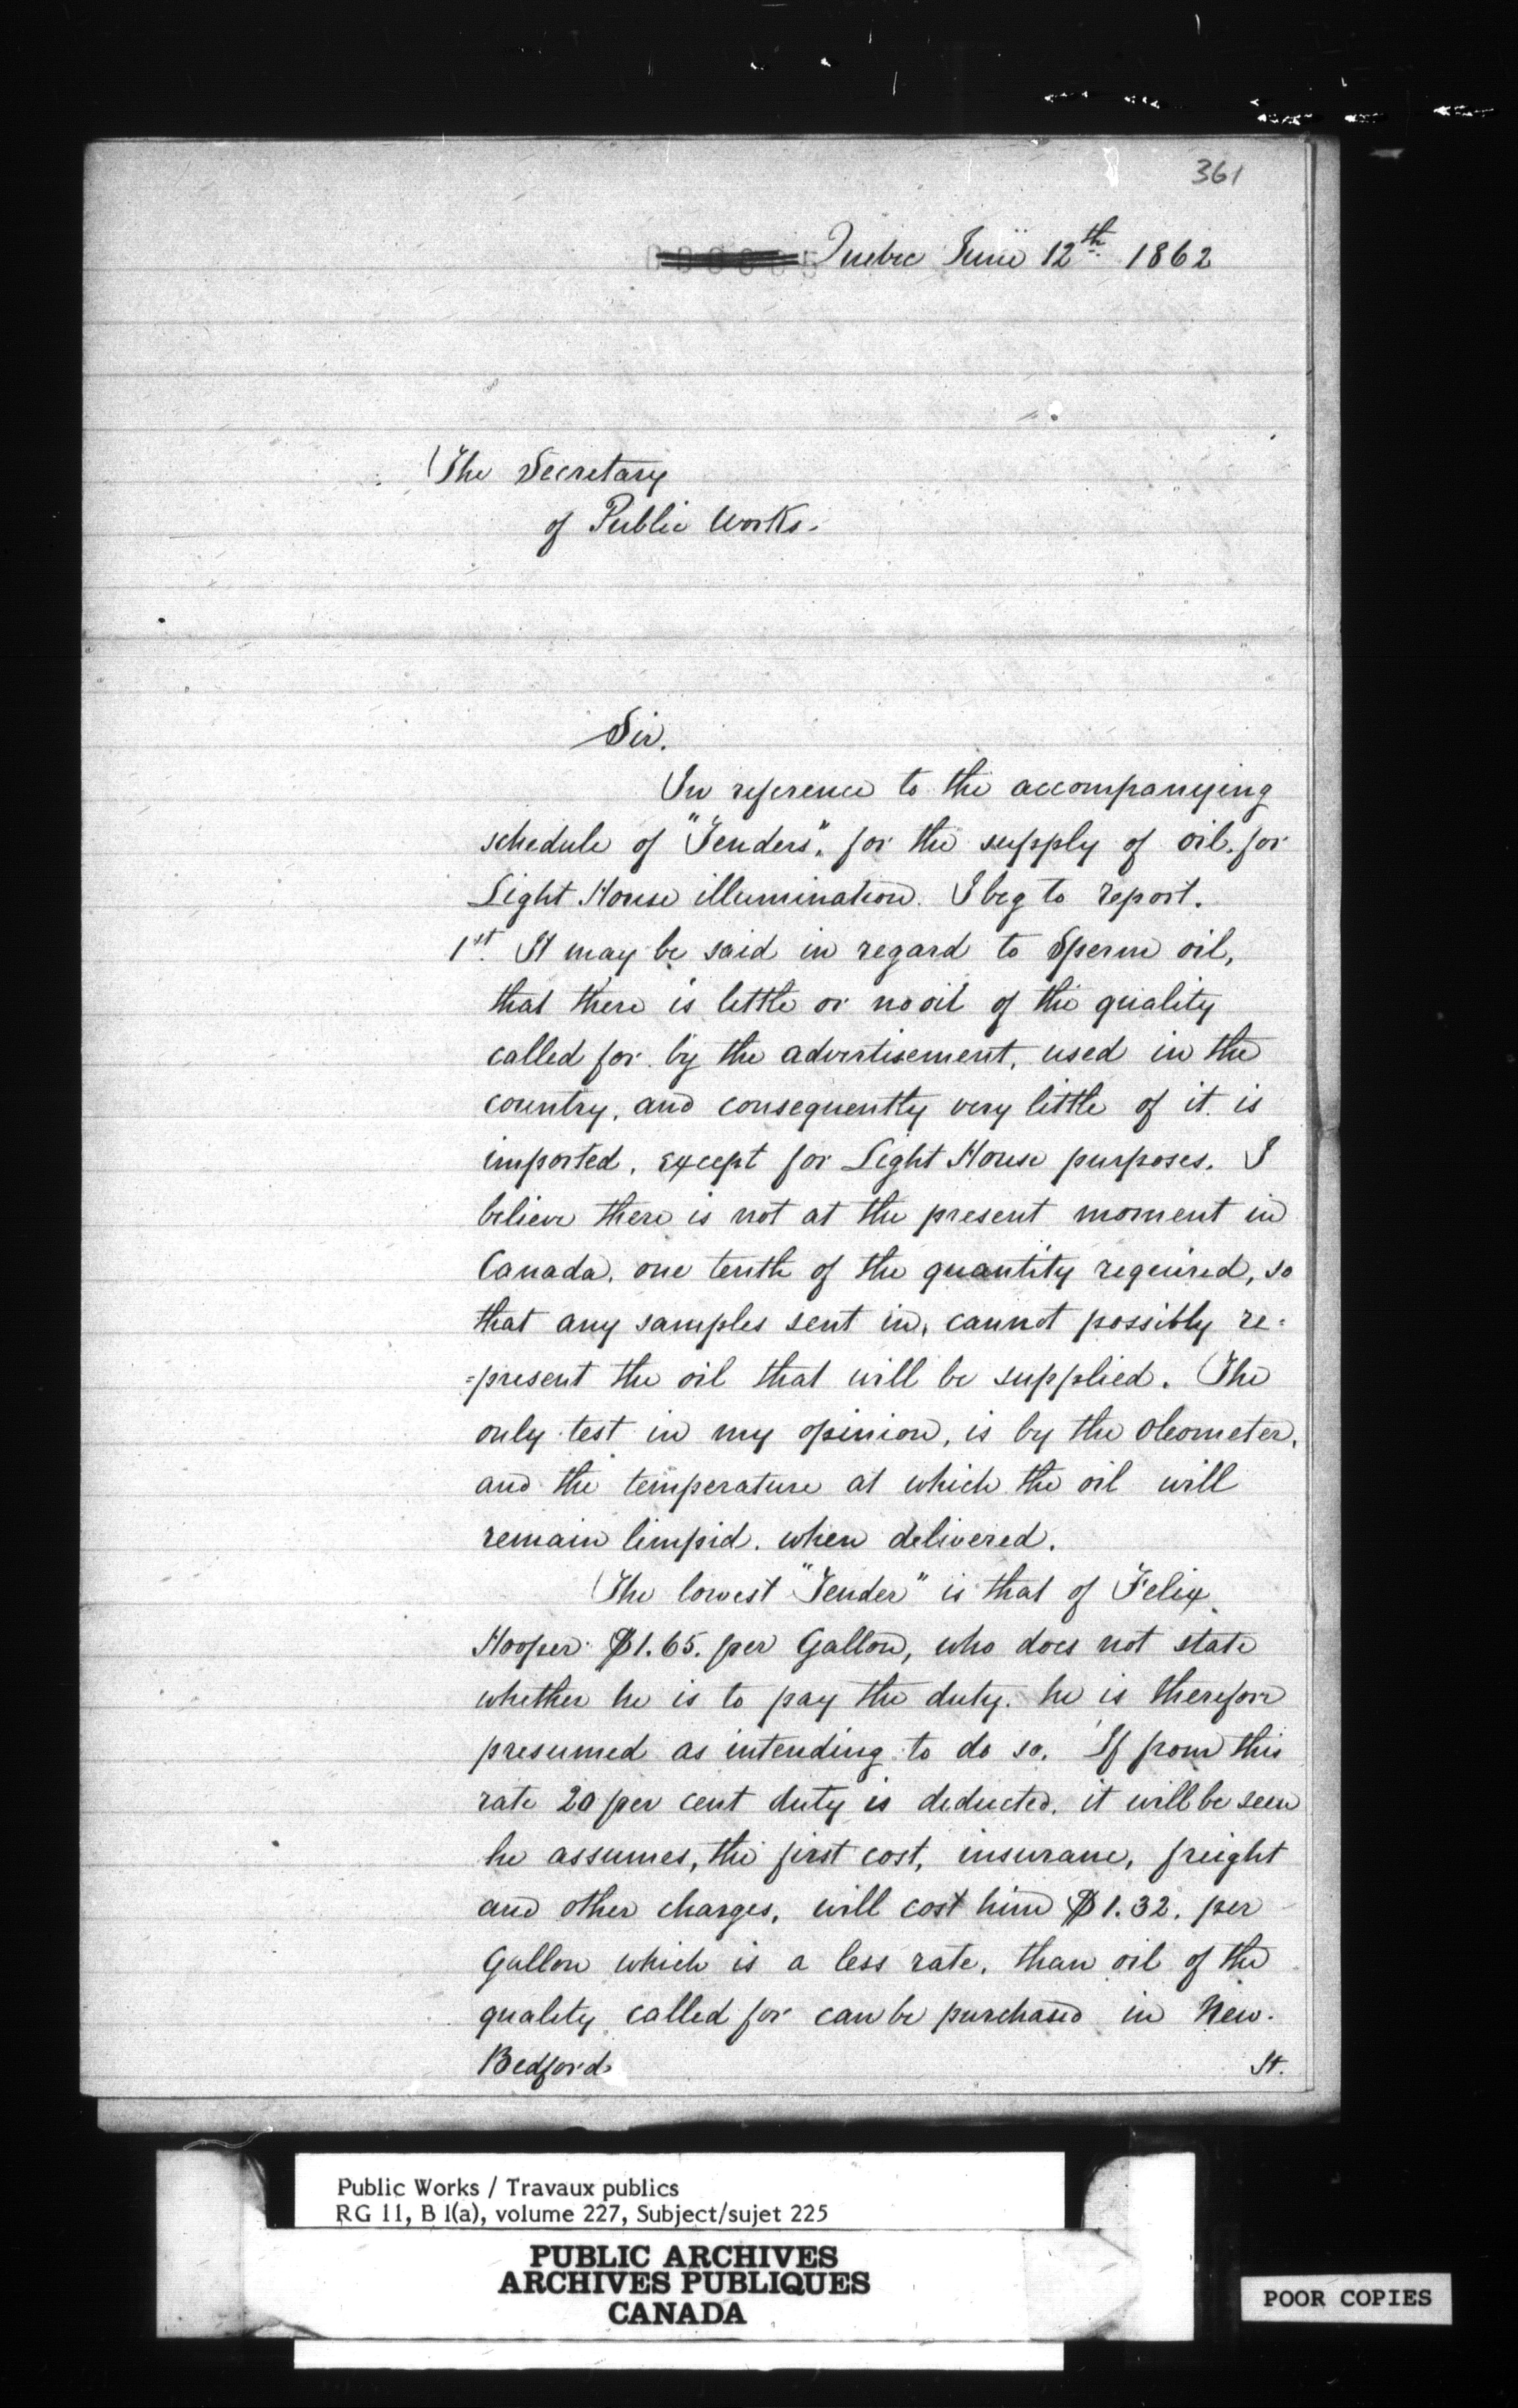 361
Quebec June 12th. 1862
The Secretary
of Public Works.
Sir.
In reference to the accompanying
schedule of "Tenders", for the supply of oil, for
Light House illumination. I beg to report.
1st. It may be said in regard to Sperm oil,
that there is little or no oil of the quality
called for by the advertisement, used in the
country, and consequently very little of it is
imported, except for Light House purposes. I
believe there is not at the present moment in
Canada, one tenth of the quantity required, so
that any samples sent in, cannot possibly re=
=present the oil that will be supplied. The
only test in my opinion, is by the Oleometer,
and the temperature at which the oil will
remain limpid. when delivered.
The lowest "Tender" is that of Felix
Hooper $1.65. per Gallon, who does not state
whether he is to pay the duty. he is therefore
presumed as intending to do so. If from this
rate 20 per cent duty is deducted, it will be seen
he assumes, the first cost, insurance, freight
and other charges, will cost him $1.32. per
Gallon which is a less rate, than oil of the
quality called for can be purchased in New.
Bedford
It.
Public Works / Travaux publics
RG 11, B 1(a), volume 227, Subject/sujet 225
PUBLIC ARCHIVES
ARCHIVES PUBLIQUES
CANADA
POOR COPIES